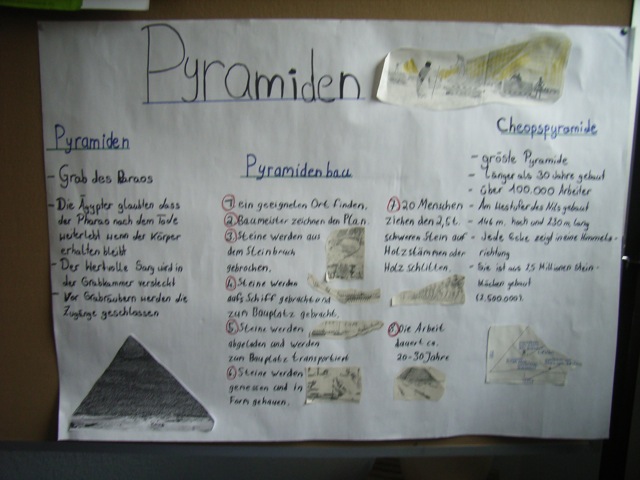 Pyramiden
Pyramiden
- Grab des Paraos
- Die Ägypter glaubten dass
der Pharao nach dem Tode
weiterlebt wenn der Körper
erhalten bleibt
- Der Wertvolle Sarg wird in
der Grabkammer versteckt
- Vor Grabräubern werden die
Zugänge geschlossen
Pyramidenbau
1 ein geeigneten Ort finden.
2. Baumeister zeichnen den Plan.
3 Steine werden aus
dem Steinbruch
gebrochen.
4 Steine werden
aufs Schiff gebracht und
zum Bauplatz gebracht.
5. Steine werden
abgeladen und werden
zum Bauplatz transportiert
6 Steine werden
gemessen und in
Form gehauen.
7 20 Menschen
ziehen den 2,5t.
schweren Stein auf
Holzstämmen oder
Holzschlitten.
8 Die Arbeit
dauert ca.
20-30 Jahre
Cheopspyramide
- größte Pyramide
- Länger als 30 Jahre gebaut
- über 100.000 Arbeiter
- Am Westufer des Nils gebaut
- 146 m. hoch und 230 m lang
- Jede Ecke zeigt in eine Himmels-
richtung
- Sie ist aus 2,5 Millionen Stein-
blöcken gebaut
(2.500.000).